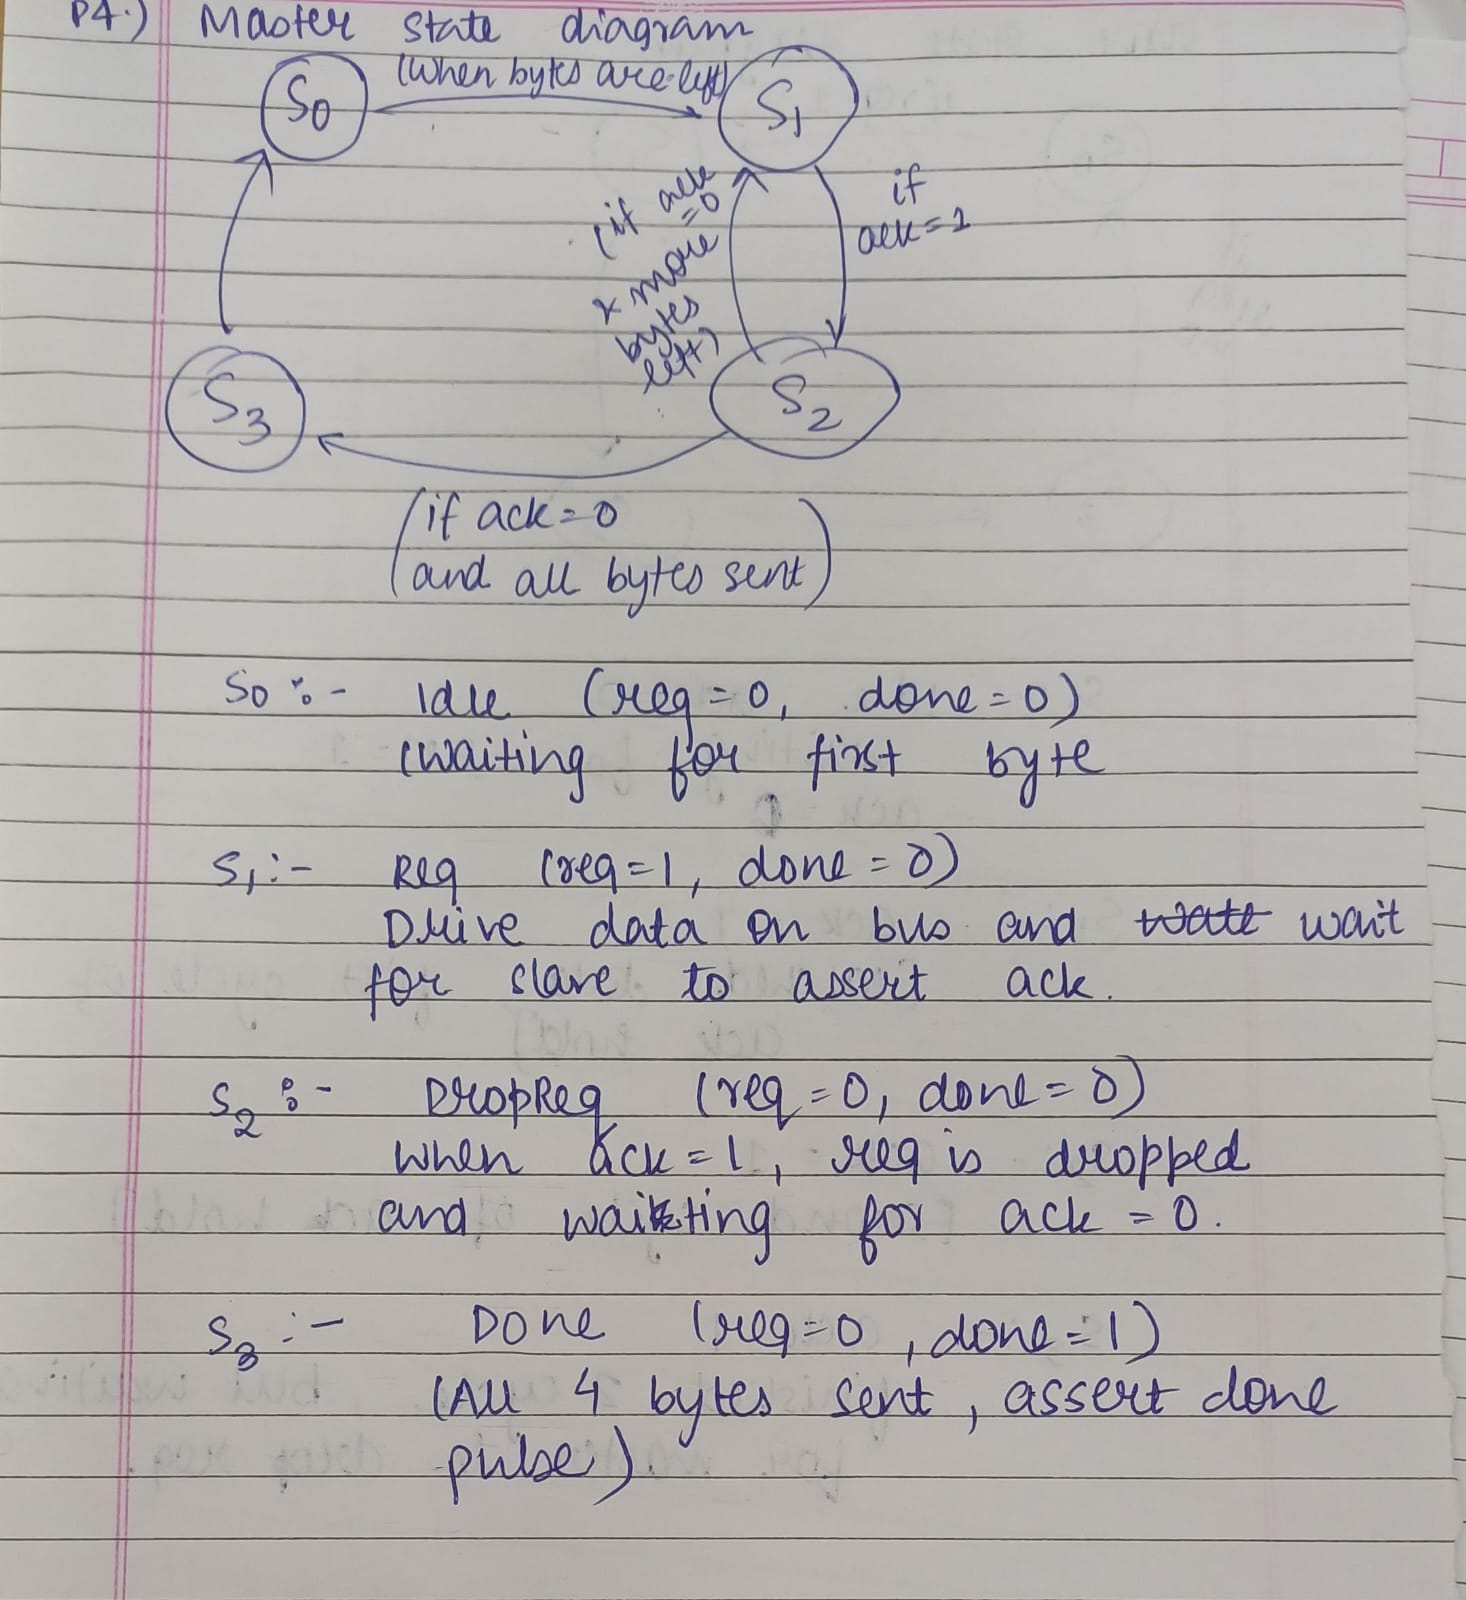 P4.) Master state diagram
(when bytes are left)
S0
S1
(if ack
=0
& more
bytes
left)
if
ack=1
S3
S2
(if ack=0
and all bytes sent)
S0 :- Idle (req=0, done=0)
(waiting for first byte
S1 :- Req (req=1, done=0)
Drive data on bus and wait
for slave to assert ack.
S2 :- DropReq (req=0, done=0)
when ack=1, req is dropped
and waiting for ack = 0.
S3 :- Done (req=0, done=1)
(All 4 bytes sent, assert done
pulse).